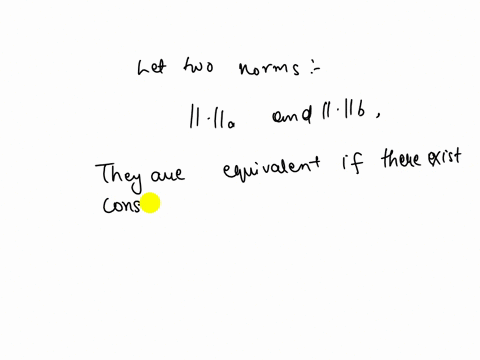 Let two norms :-
||·||a and ||·||b,
They are equivalent if there exist
cons